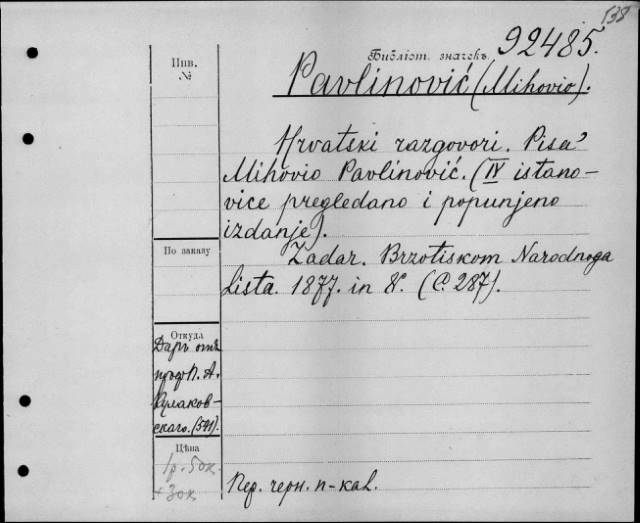 138
Инв.
№
Бібліот. значекъ. 92485.
Pavlinović (Mihovio).
Hrvatski razgovori. Pisa'
Mihovio Pavlinović. (IV istano-
vice pregledano i popunjeno
izdanje).
По заказу
Zadar. Brzotiskom Narodnoga
Lista. 1877. in 8°. (C. 287).
Откуда
Даръ отъ
проф. П. А.
Кулаков-
скаго. (541).
Цѣна
1р. 50к.
+ 30к.
Пер. черн. п-кал.